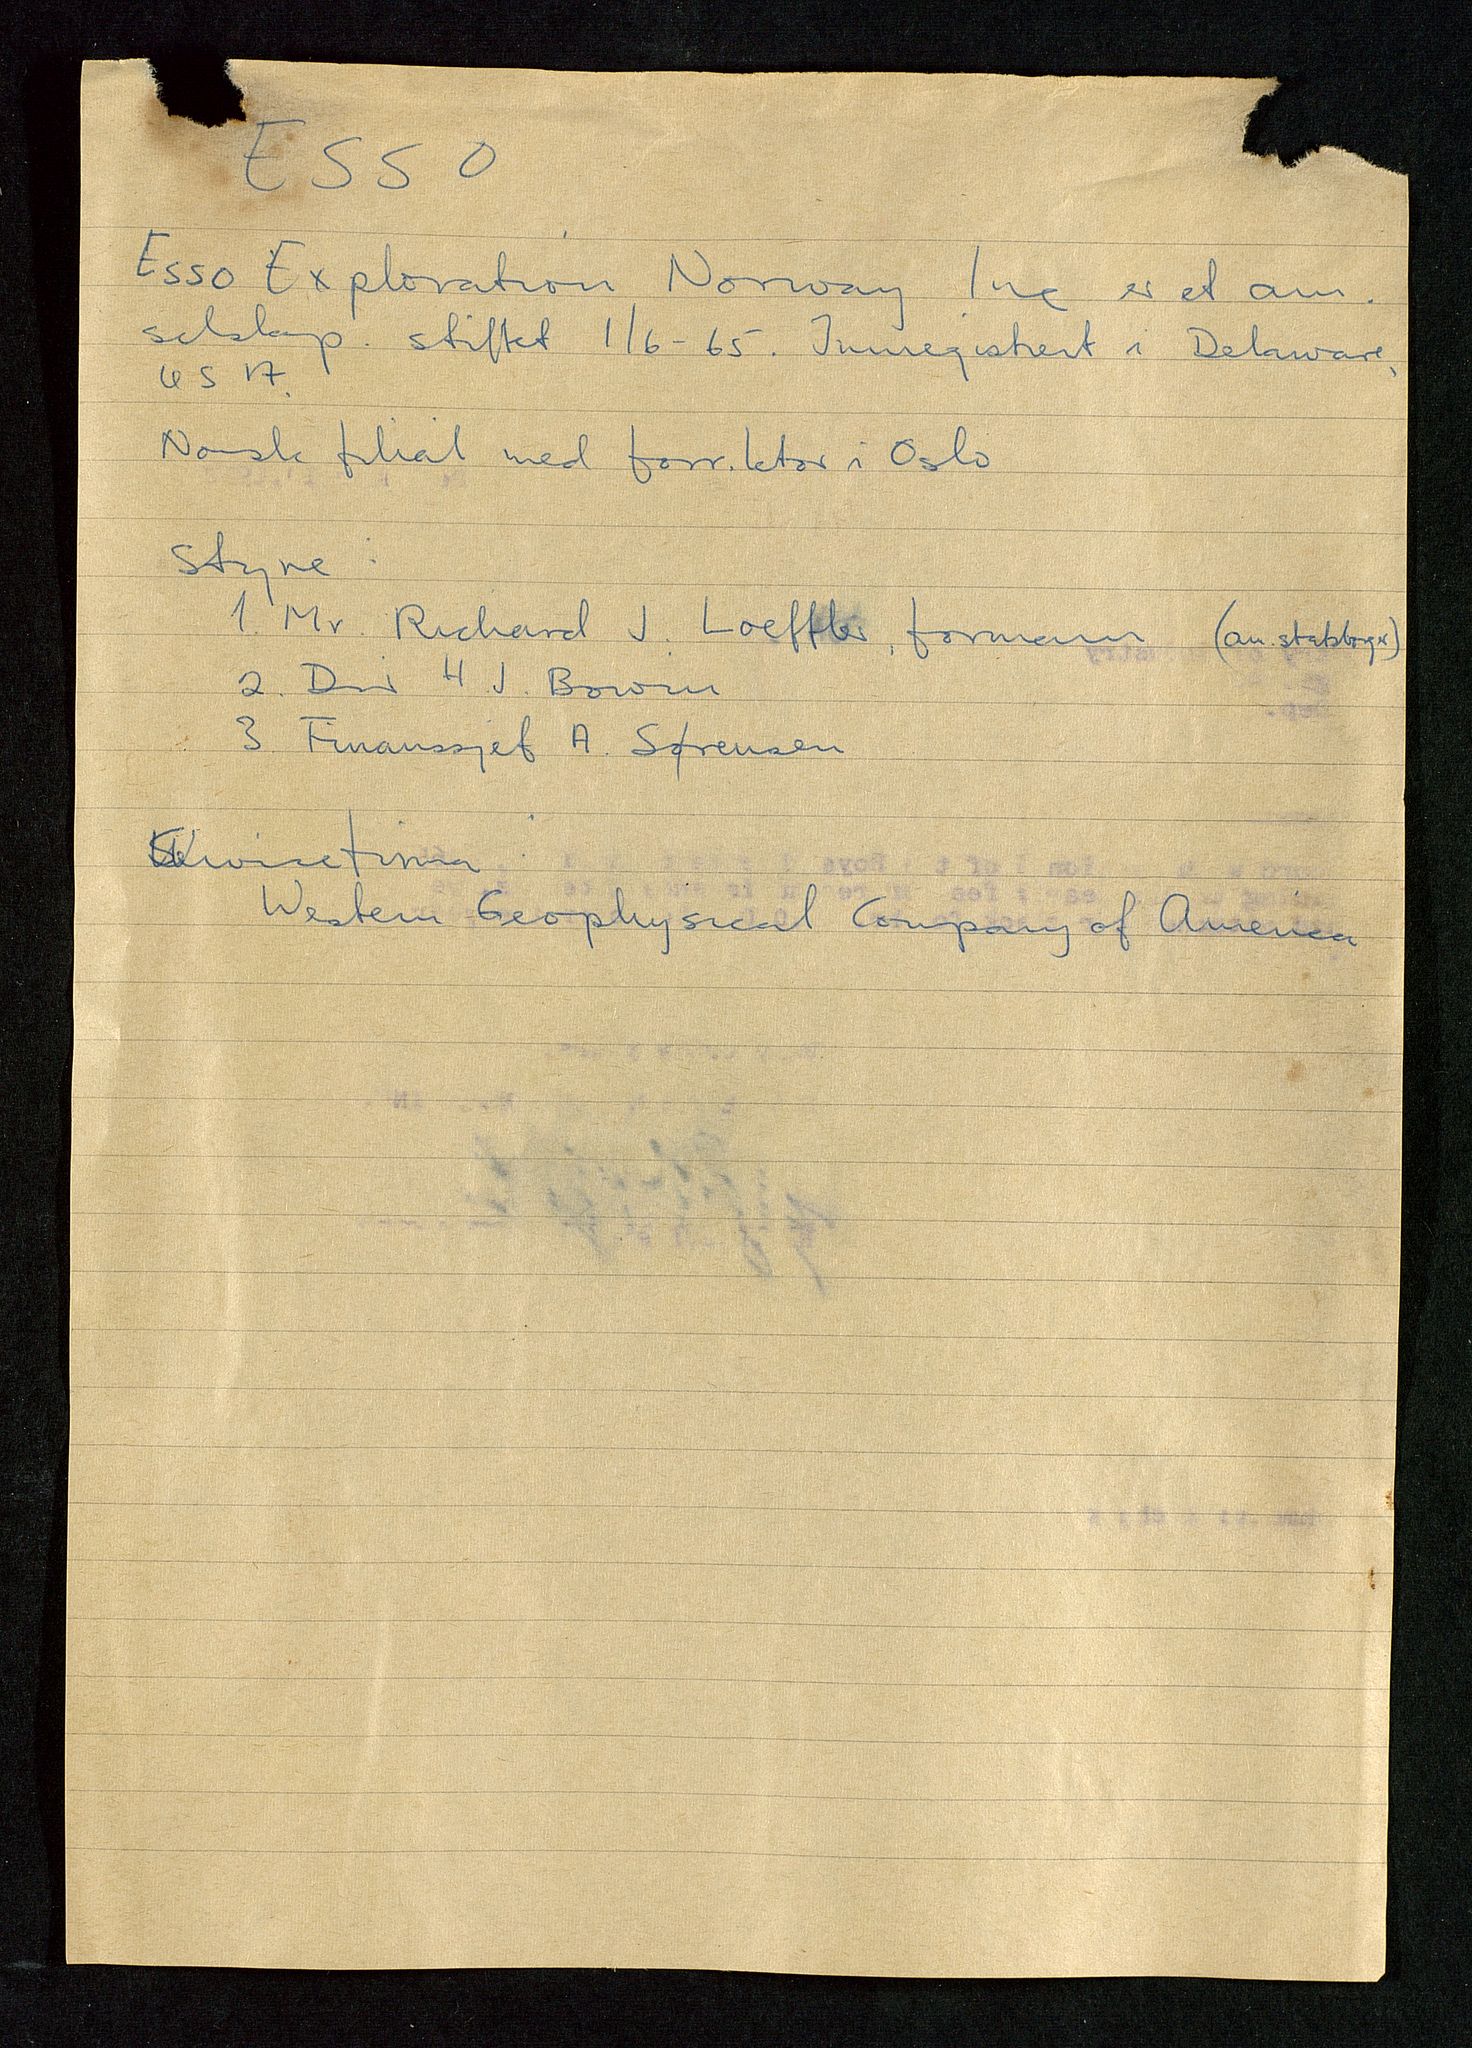 ESSO
Esso Exploration Norway Inc er et am.
selskap. stiftet 1/6-65. Innregistrert i Delaware,
USA.
Norsk filial med forr.ktor i Oslo
Styre:
1. Mr. Richard J. Loeffler, formann (am. statsborger)
2. Dir H. J. Bowen
3 Finanssjef A. Sørensen
Servicefirma:
Western Geophysical Company of America